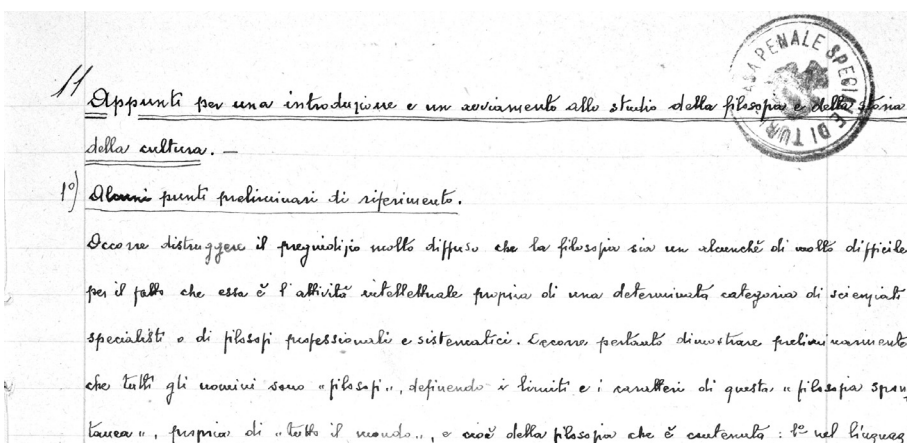 11
Appunti per una introduzione e un avviamento allo studio della filosofia e della storia
della cultura. —
1º) Alcuni punti preliminari di riferimento.
Occorre distruggere il pregiudizio molto diffuso che la filosofia sia un alcunché di molto difficile
per il fatto che essa è l'attività intellettuale propria di una determinata categoria di scienziati
specialisti o di filosofi professionali e sistematici. Occorre pertanto dimostrare preliminarmente
che tutti gli uomini sono "filosofi", definendo i limiti e i caratteri di questa "filosofia spon
tanea", propria di "tutto il mondo", e cioè della filosofia che è contenuta: 1º nel linguag
CASA PENALE SPECIALE DI TURI